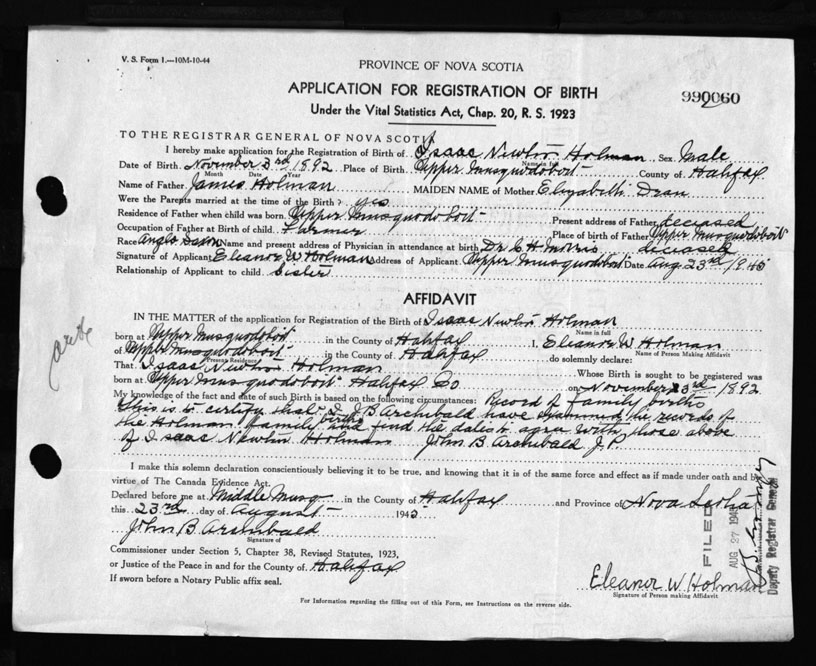 V. S. Form 1.—10M-10-44
PROVINCE OF NOVA SCOTIA
APPLICATION FOR REGISTRATION OF BIRTH
990060
Under the Vital Statistics Act, Chap. 20, R. S. 1923
TO THE REGISTRAR GENERAL OF NOVA SCOTIA
I hereby make application for the Registration of Birth of Isaac Newton Holman Sex Male
Name in full
Date of Birth November 3rd 1892 Place of Birth Upper Musquodoboit County of Halifax
Month Date Year
Name of Father James Holman MAIDEN NAME of Mother Elizabeth Dean
Were the Parents married at the time of the Birth? yes
Residence of Father when child was born Upper Musquodoboit Present address of Father deceased
Occupation of Father at Birth of child Farmer Place of birth of Father Upper Musquodoboit
Race Anglo Saxon Name and present address of Physician in attendance at birth Dr C H Morris deceased
Signature of Applicant Eleanor W Holman Address of Applicant Upper Musquodoboit Date Aug 23rd 1945
Relationship of Applicant to child Sister
AFFIDAVIT
IN THE MATTER of the application for Registration of the Birth of Isaac Newton Holman
Name in full
born at Upper Musquodoboit in the County of Halifax I, Eleanor W Holman
Name of Person Making Affidavit
of Upper Musquodoboit in the County of Halifax do solemnly declare:
Present Residence
That Isaac Newton Holman Whose Birth is sought to be registered was
born at Upper Musquodoboit Halifax Co on November 3rd 1892
My knowledge of the fact and date of such Birth is based on the following circumstances: Record of family births
This is to certify that I J B Archibald have examined the records of
the Holman family births and find the dates to agree with those above
of Isaac Newton Holman John B Archibald J.P.
I make this solemn declaration conscientiously believing it to be true, and knowing that it is of the same force and effect as if made under oath and by
virtue of The Canada Evidence Act.
Declared before me at Middle Musq in the County of Halifax and Province of Nova Scotia
this 23rd day of August 1945
John B Archibald
Signature of
Commissioner under Section 5, Chapter 38, Revised Statutes, 1923,
or Justice of the Peace in and for the County of Halifax
If sworn before a Notary Public affix seal.
Eleanor W. Holman
Signature of Person making Affidavit
For Information regarding the filling out of this Form, see Instructions on the reverse side.
FILED
AUG 27 194
Deputy Registrar General